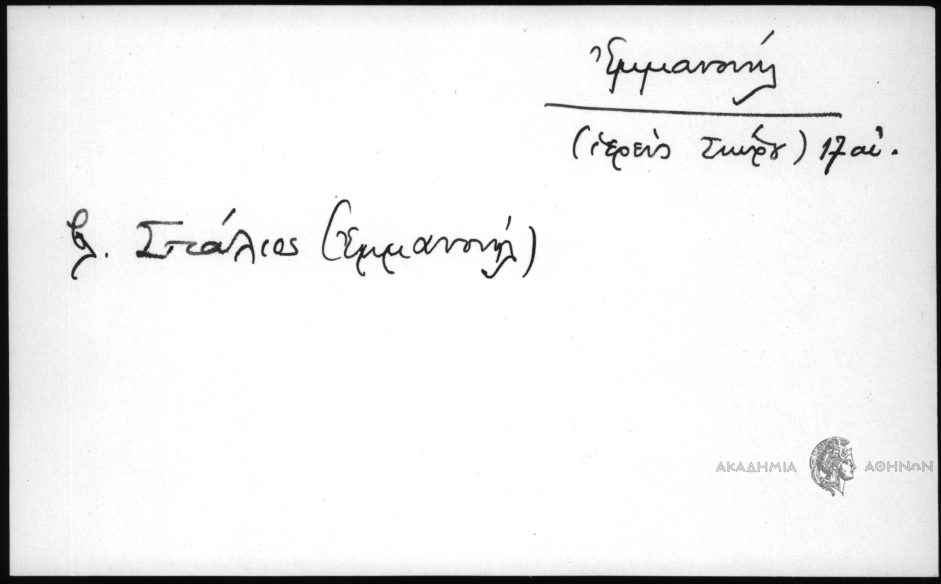 Ἐμμανουήλ
(ἱερεὺς Σκύρου) 17 αἰ.
βλ. Σπάλιος (Ἐμμανουήλ)
ΑΚΑΔΗΜΙΑ ΑΘΗΝΩΝ